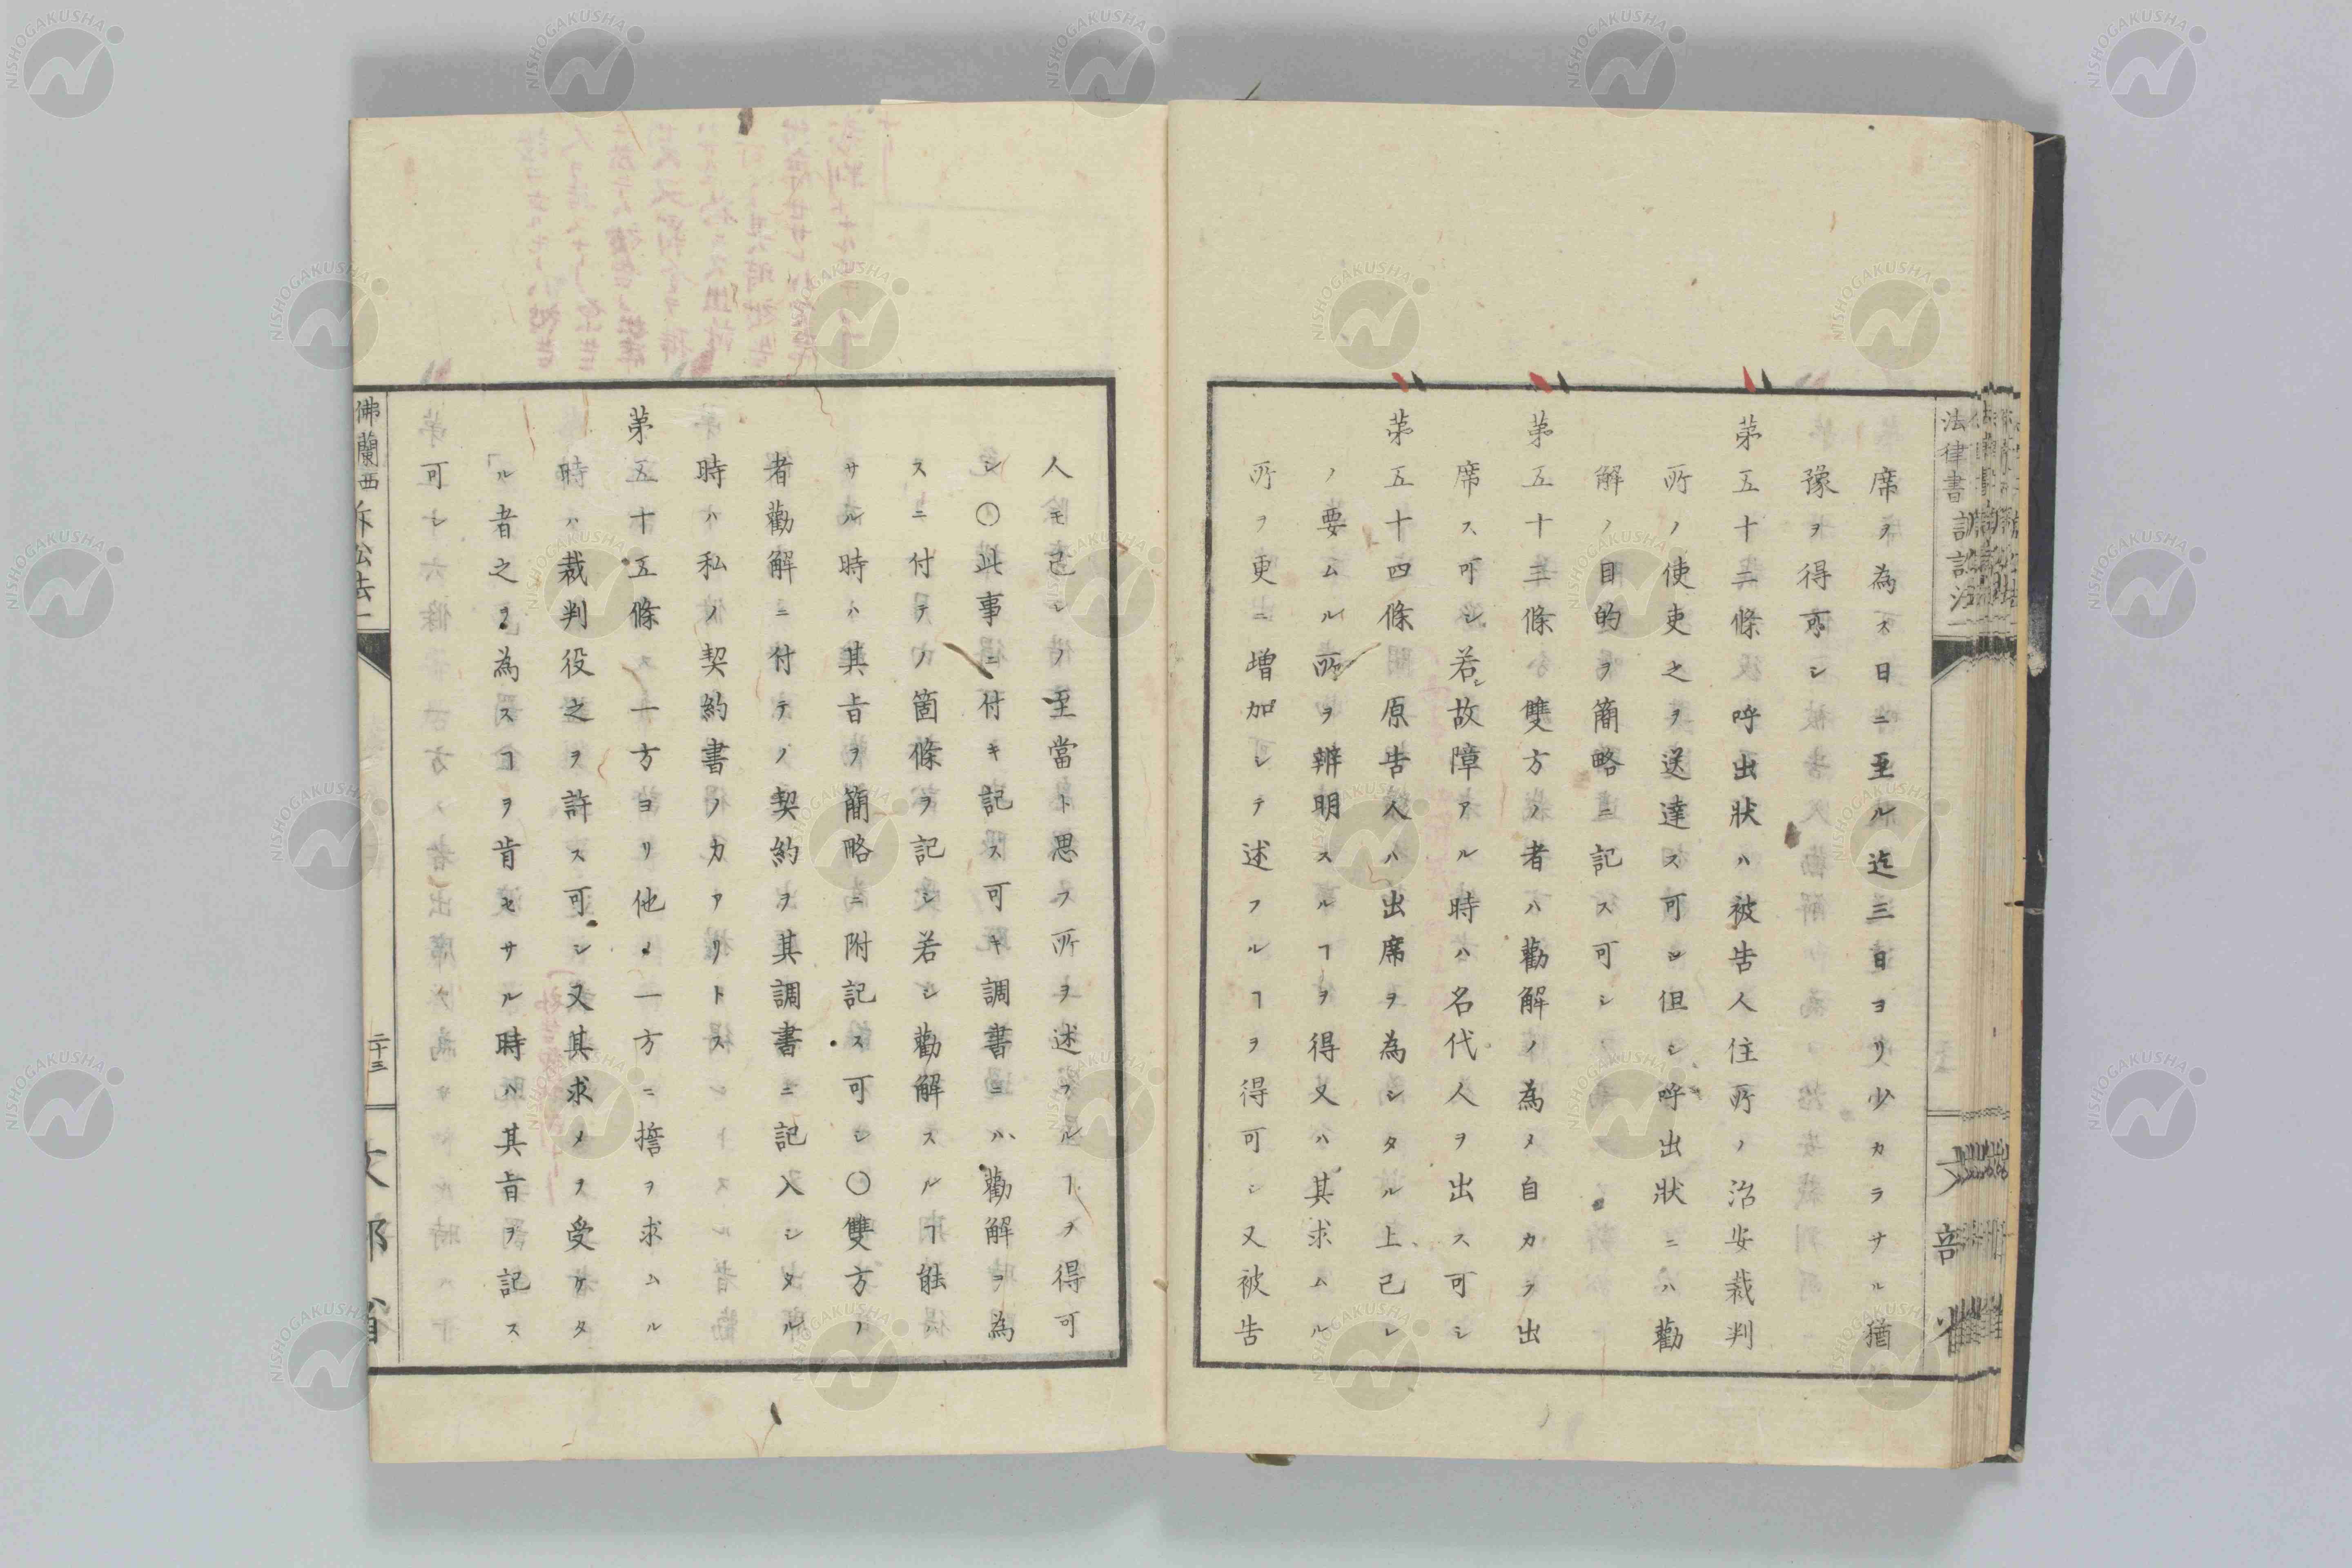 席ヲ為ス日ニ至ル迄三日ヨリ少カラサル猶
豫ヲ得可シ
第五十二條 呼出狀ハ被告人住所ノ治安裁判
所ノ使吏之ヲ送達ス可シ但シ呼出狀ニハ勸
解ノ目的ヲ簡略ニ記ス可シ
第五十三條 雙方ノ者ハ勸解ノ為メ自カラ出
席ス可シ若シ故障アル時ハ名代人ヲ出ス可シ
第五十四條 原告人ハ出席ヲ為シタル上己レ
ノ要ムル所ヲ辨明スルヿヲ得又ハ其求ムル
所ヲ更ニ增加シテ述フルヿヲ得可シ又被告
人モ己レノ至當ト思フ所ヲ述フルヿヲ得可
シ〇此事ニ付キ記ス可キ調書ニハ勸解ヲ為
スニ付テノ箇條ヲ記シ若シ勸解スルヿ能ハ
サル時ハ其旨ヲ簡略ニ附記ス可シ〇雙方ノ
者勸解ニ付テノ契約ヲ其調書ニ記入シタル
時ハ私ノ契約書ノ力アリトス
第五十五條 一方ヨリ他ノ一方ニ擔ヲ求ムル
時ハ裁判役之ヲ許ス可シ又其求メヲ受ケタ
ル者之ヲ為スヿヲ肯セサル時ハ其旨ヲ記ス
可シ
佛蘭西訴訟法一
二十三
文部省
法律書
文部省
NISHOGAKUSHA